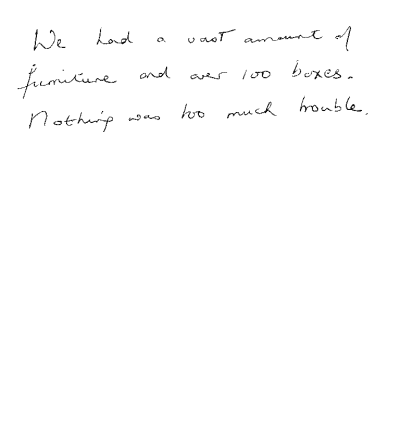 We had a vast amount of
furniture and over 100 boxes.
Nothing was too much trouble.